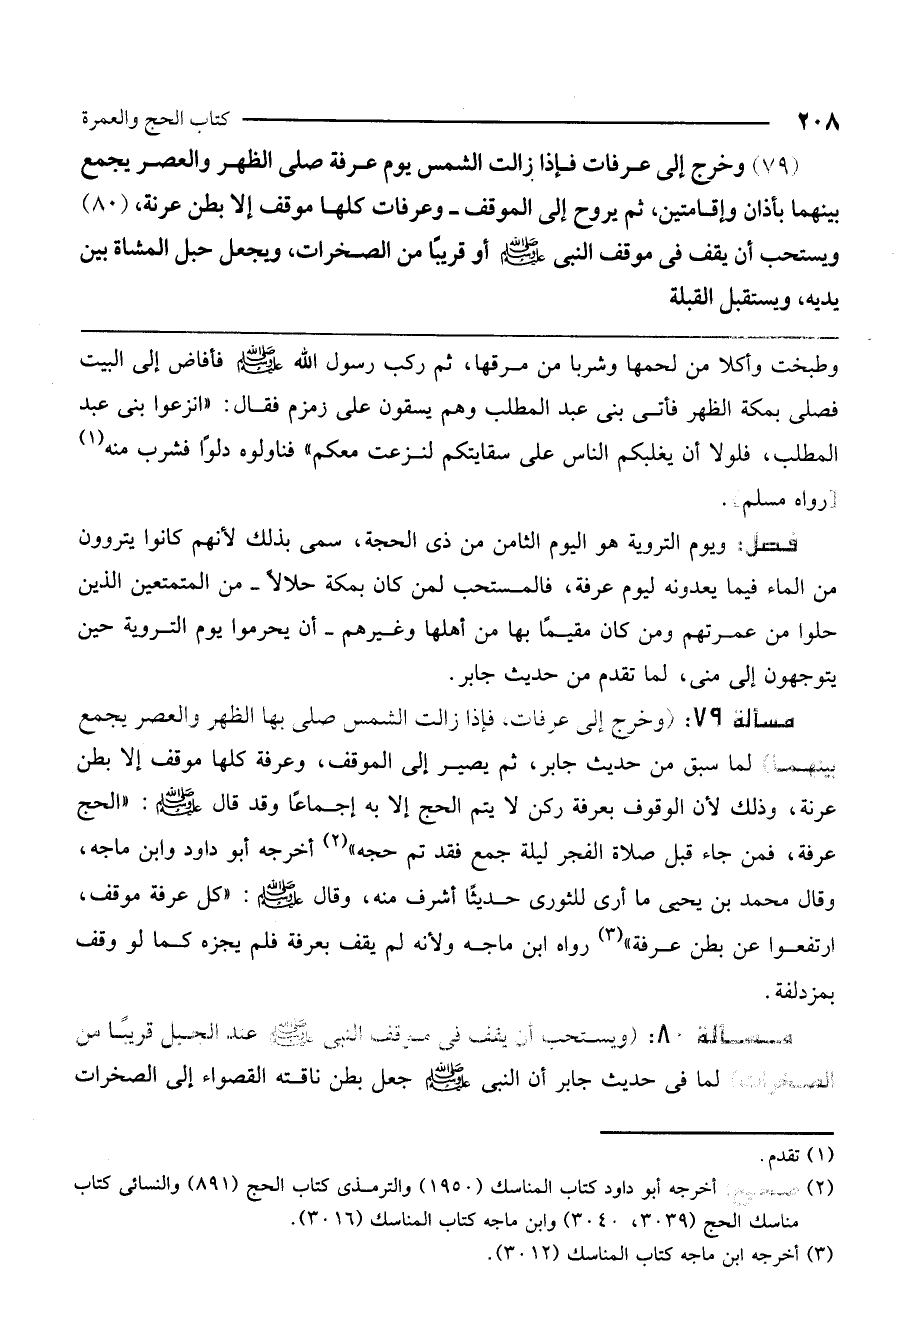 ٢٠٨ كتاب الحج والعمرة
(٧٩) وخرج إلى عرفات فإذا زالت الشمس يوم عرفة صلى الظهر والعصر يجمع
بينهما بأذان وإقامتين، ثم يروح إلى الموقف - وعرفات كلها موقف إلا بطن عرنة، (٨٠)
ويستحب أن يقف فى موقف النبى ﷺ أو قريبًا من الصخرات، ويجعل حبل المشاة بين
يديه، ويستقبل القبلة
وطبخت وأكلا من لحمها وشربا من مرقها، ثم ركب رسول الله ﷺ فأفاض إلى البيت
فصلى بمكة الظهر فأتى بنى عبد المطلب وهم يسقون على زمزم فقال: «انزعوا بنى عبد
المطلب، فلولا أن يغلبكم الناس على سقايتكم لنزعت معكم» فناولوه دلوًا فشرب منه(١)
[رواه مسلم].
فصل: ويوم التروية هو اليوم الثامن من ذى الحجة، سمى بذلك لأنهم كانوا يتروون
من الماء فيما يعدونه ليوم عرفة، فالمستحب لمن كان بمكة حلالاً - من المتمتعين الذين
حلوا من عمرتهم ومن كان مقيمًا بها من أهلها وغيرهم - أن يحرموا يوم التروية حين
يتوجهون إلى منى، لما تقدم من حديث جابر.
مسألة ٧٩: (وخرج إلى عرفات، فإذا زالت الشمس صلى بها الظهر والعصر يجمع
بينهما) لما سبق من حديث جابر، ثم يصير إلى الموقف، وعرفة كلها موقف إلا بطن
عرنة، وذلك لأن الوقوف بعرفة ركن لا يتم الحج إلا به إجماعًا وقد قال ﷺ: «الحج
عرفة، فمن جاء قبل صلاة الفجر ليلة جمع فقد تم حجه»(٢) أخرجه أبو داود وابن ماجه،
وقال محمد بن يحيى ما أرى للثورى حديثًا أشرف منه، وقال ﷺ: «كل عرفة موقف،
ارتفعوا عن بطن عرفة»(٣) رواه ابن ماجه ولأنه لم يقف بعرفة فلم يجزه كما لو وقف
بمزدلفة.
مسألة ٨٠: (ويستحب أن يقف فى موقف النبى ﷺ عند الجبل قريبًا من
الصخرات) لما فى حديث جابر أن النبى ﷺ جعل بطن ناقته القصواء إلى الصخرات
(١) تقدم.
(٢) صحيح: أخرجه أبو داود كتاب المناسك (١٩٥٠) والترمذى كتاب الحج (٨٩١) والنسائى كتاب
مناسك الحج (٣٠٣٩، ٣٠٤٠) وابن ماجه كتاب المناسك (٣٠١٦).
(٣) أخرجه ابن ماجه كتاب المناسك (٣٠١٢).